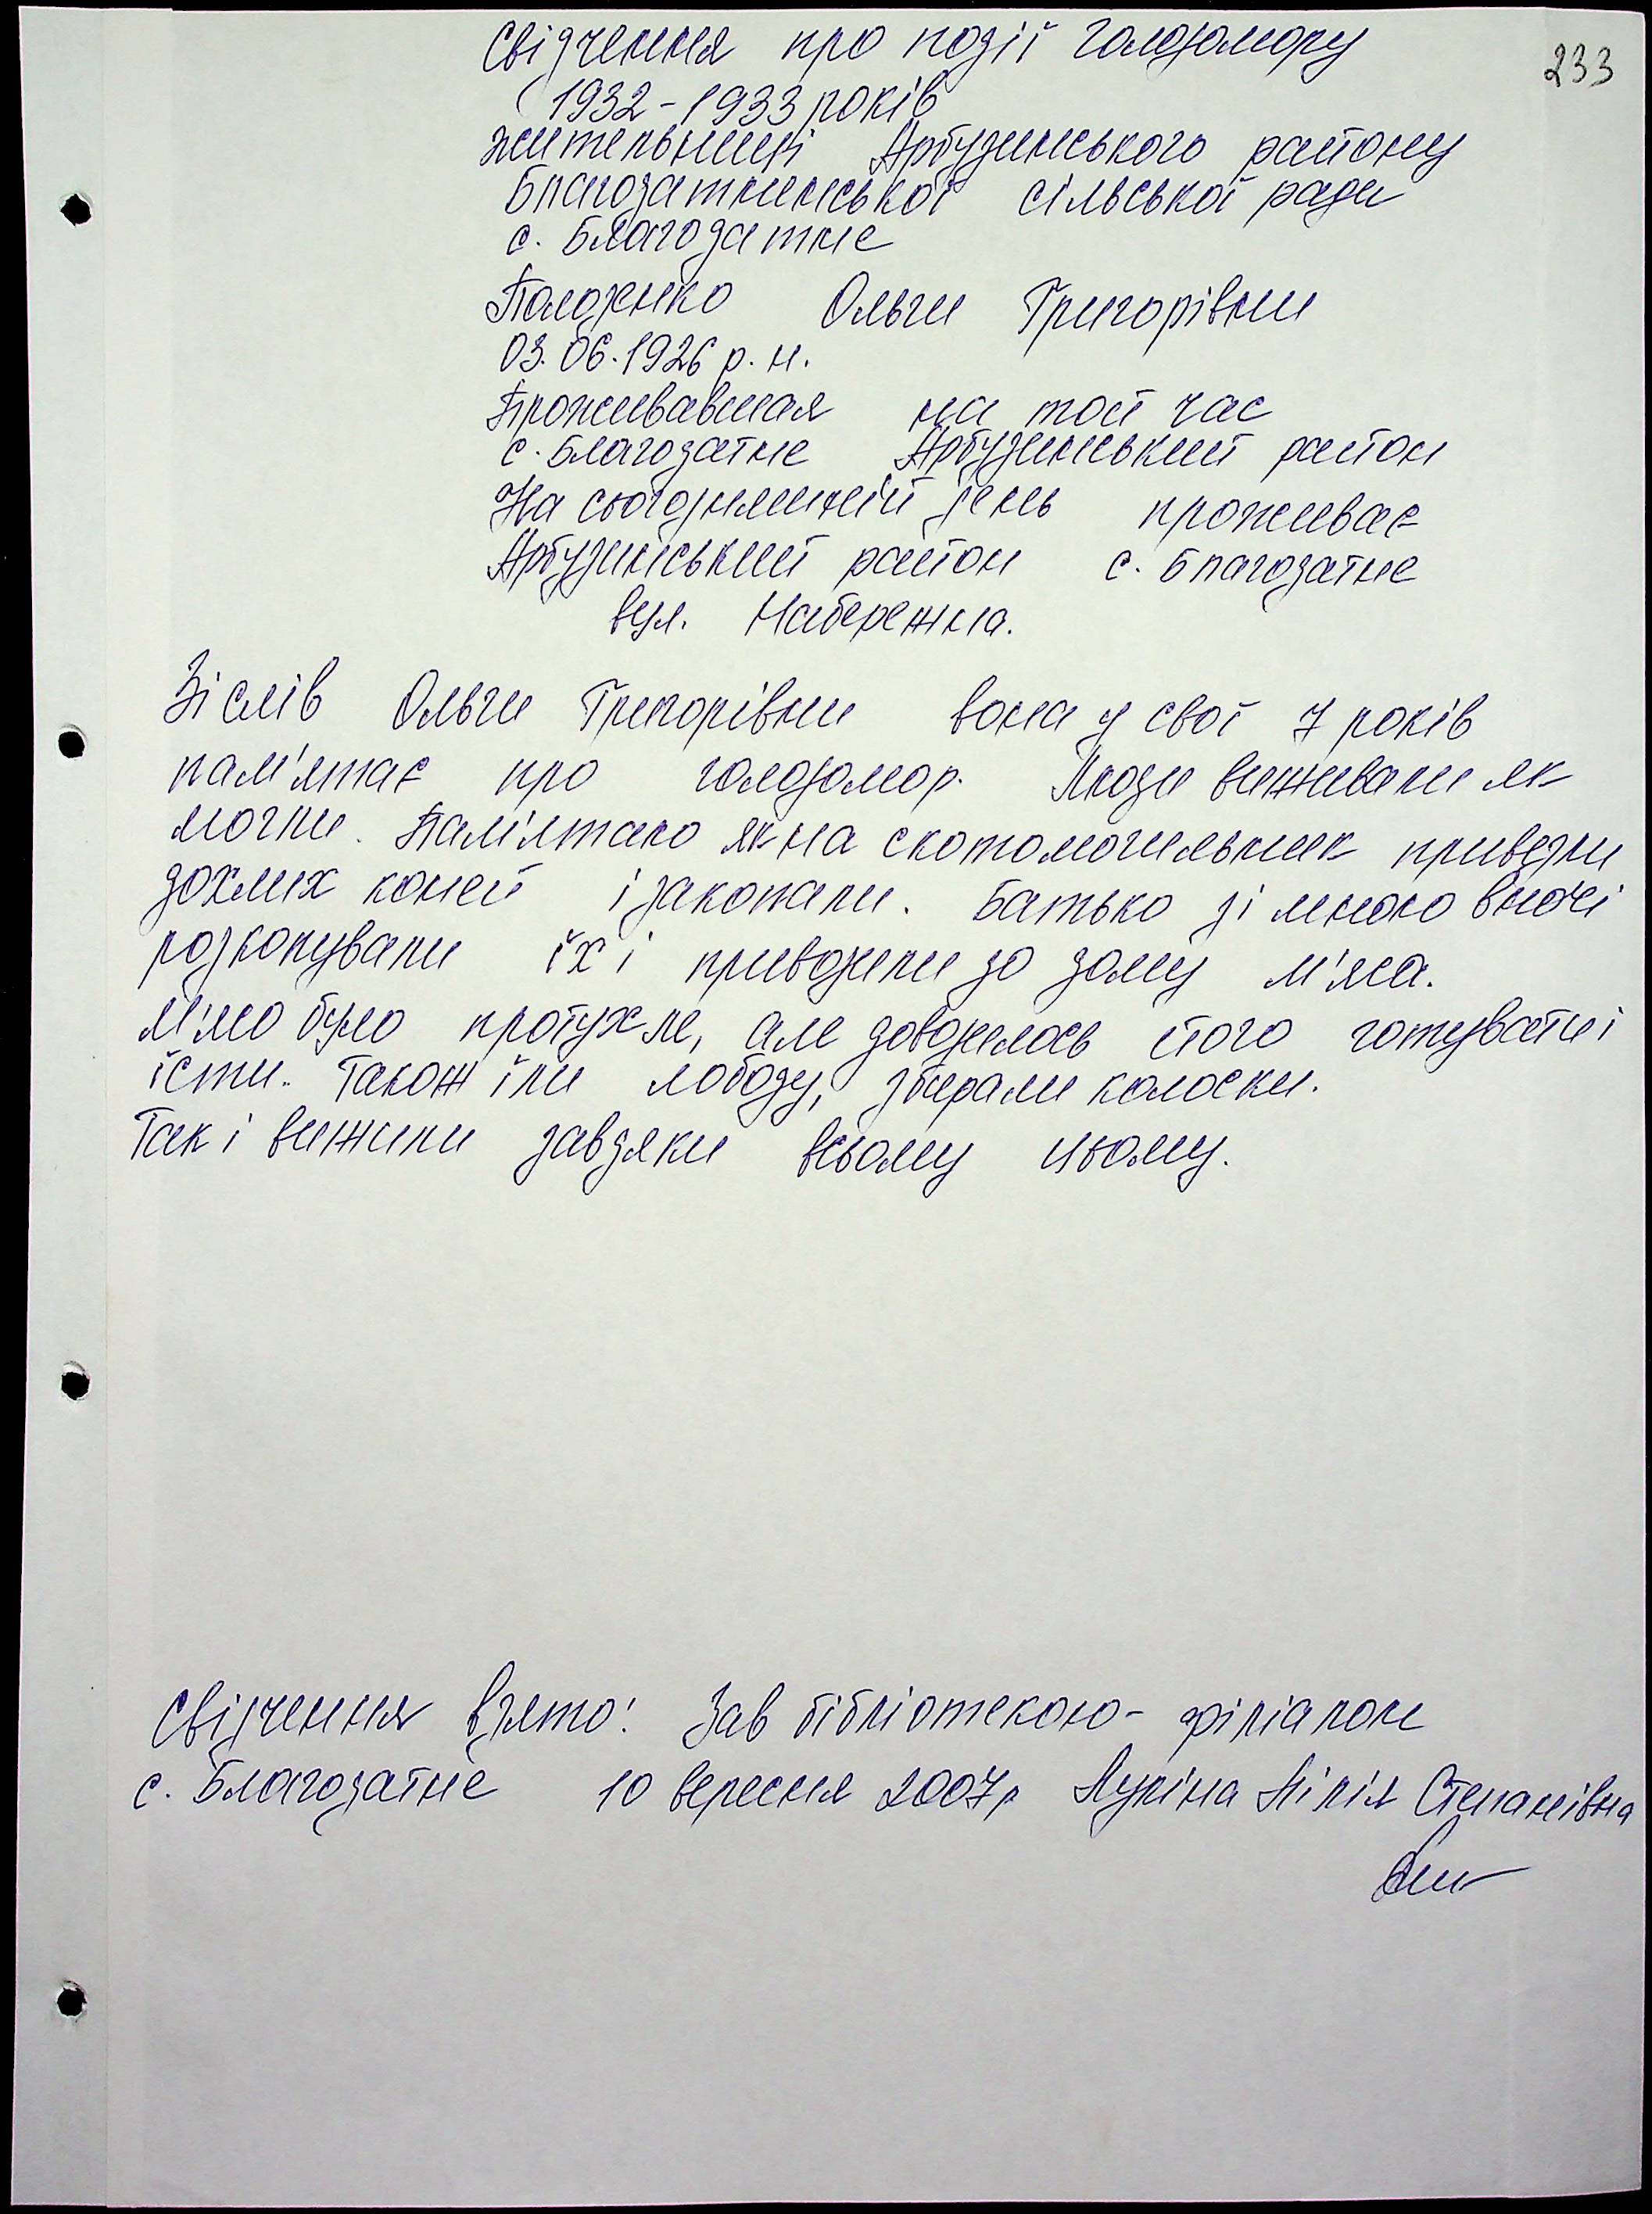 233
Свідчення про події голодомору
1932-1933 років
жительниці Арбузинського району
Благодатненської сільської ради
с. Благодатне
Ольги Григорівни
03.06.1926 р.н.
Проживавшая на той час
с. Благодатне Арбузинський район
На сьогоднішній день проживає
Арбузинський район с. Благодатне
вул. Набережна.
Зі слів Ольги Григорівни вона у свої 7 років
пам'ятає про голодомор. Люди виживали як
могли. Пам'ятаю як на скотомогильник привезли
дохлих коней і закопали. Батько зі мною вночі
розкопували їх і привозили до дому м'яса.
М'ясо було протухле, але доводилось його готувати і
їсти. Також їли лободу, збирали колоски.
Так і вижили завдяки всьому цьому.
Свідчення взято: Зав бібліотекою-філіалом
с. Благодатне 10 вересня 2007р Лупіна Лілія Степанівна